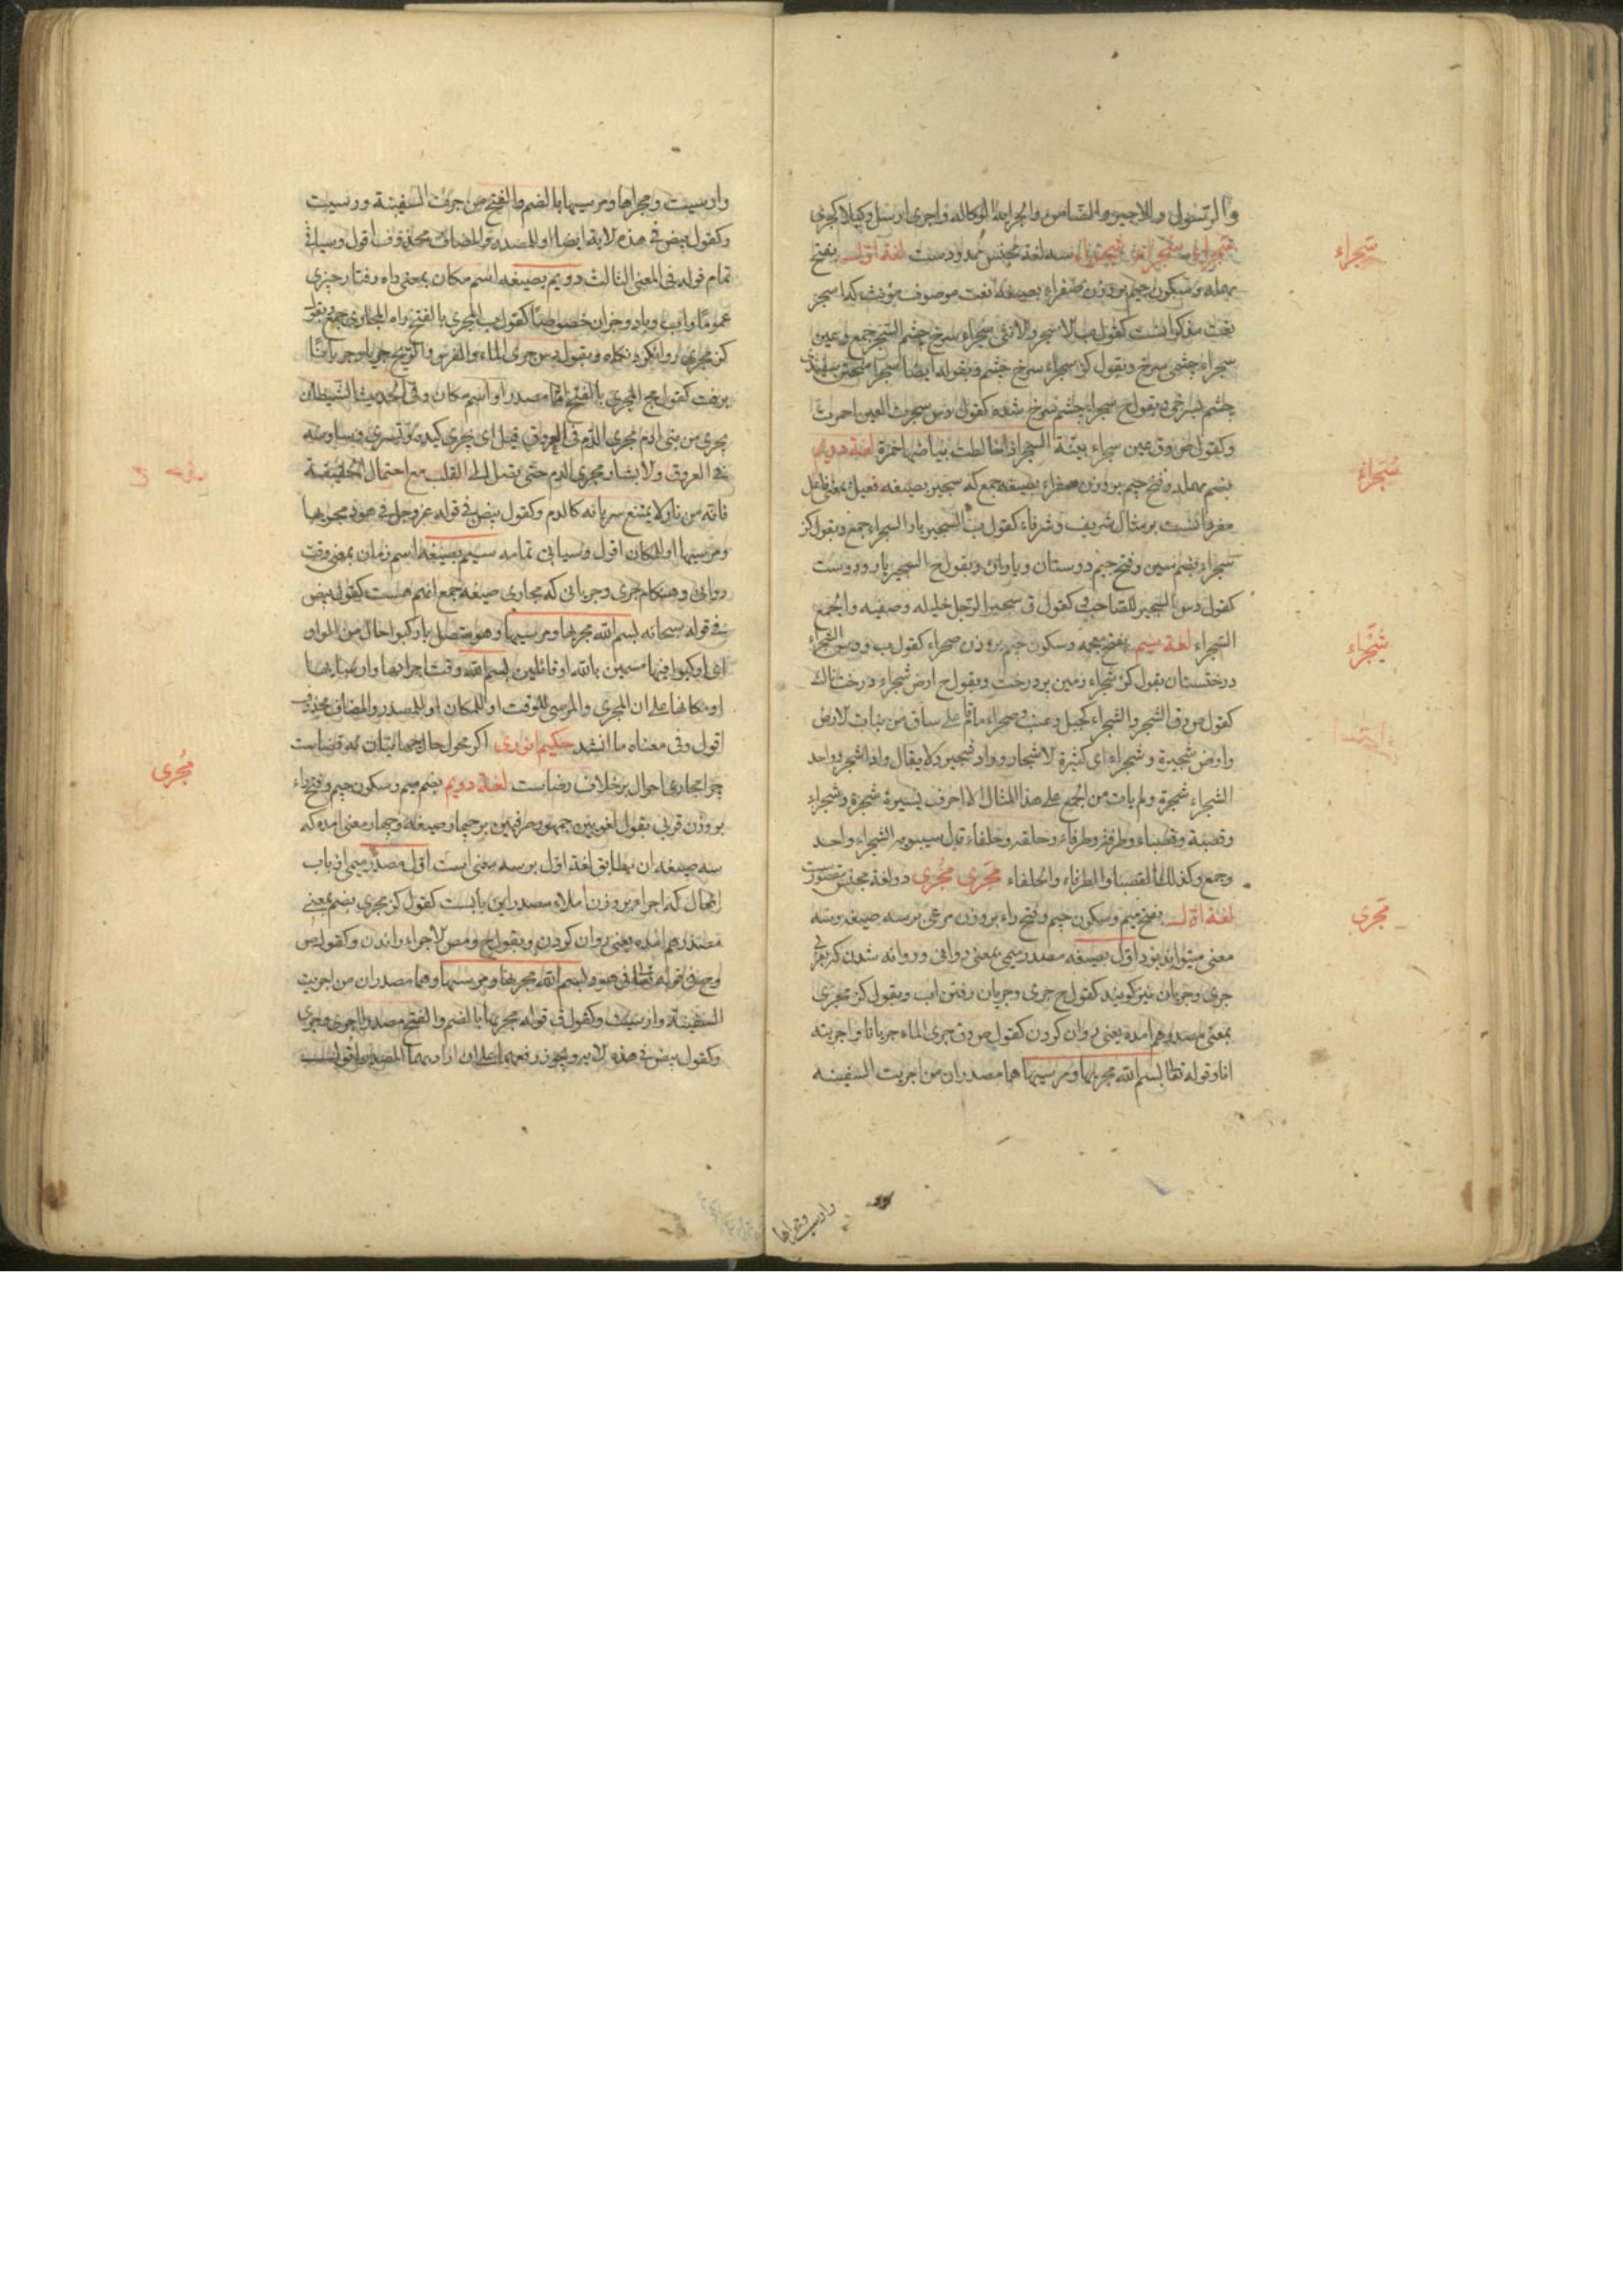 والرسول والاجير والضامن والجراية الوكالة واجرى ارسل وكيلا كجرى
سَجراء سُجراء شَجراء سه لغة مجنس ممدودست لغة اول بفتح
سَجراء
مهمله وسكون جيم بر وزن صفراء بصيغه نعت موصوف مؤنث كه اسجر
نعت مذكر انست كقول ب الاسجر والانثى سجراء سرخ چشم السجر جمع وعين
سجراء چشمى سرخ وبقول كز سجراء سرخ چشم وبقوله ايضا
چشم بسرخى وبقول ح سجراء چشم سرخ شده كقول وس سجرت العين احمرت
وكقول ص وق عين سجراء بينة السجر اذا خالطت بياضها حمرة لغة دويم
بضم مهمله وفتح جيم بر وزن صغراء بصيغه جمع كه سجير بصيغه فعيل بمعنى فاعل
سُجَراءُ
مفرد انست بر مثال شريف وشرفاء كقول ب السجير يار السجراء جمع وبقول كز
سجراء بضم سين وفتح جيم دوستان وياران وبقول ح السجير يار ودوست
كقول وس السجير للصاحب وكقول ق سجير الرجل خليله وصفيه والجمع
السجراء لغة سيم بفتح معجمه وسكون جيم بر وزن صحراء كقول ب ودس الشجراء
شَجْراء
درختستان بقول كز شجراء زمين پر درخت وبقول ح ارض شجراء درختناك
كقول ص وق الشجر والشجراء كجبل وعنب وصحراء ما قام على ساق من نبات الارض
وارض شجيرة وشجراء اى كثيرة الاشجار وواد شجير ولا يقال واد اشجر وواحد
الشجراء شجرة ولم يات من الجمع على هذا المثال الا احرف يسيرة شجرة وشجراء
وقصبة وقصباء وطرفة وطرفاء وحلفة وحلفاء قال سيبويه الشجراء واحد
وجمع وكذلك القصباء والطرفاء والحلفاء مَجرى مُجرى دو لغة مجنس مقصورست
لغة اول بفتح ميم وسكون جيم وفتح راء بر وزن مرعى بر سه صيغه وسه
مَجرى
معنى ميتواند بود اول بصيغه مصدر ميمى بمعنى روانى وروانه شدن كه بعربى
جرى وجريان نيز كويند كقول ح جرى وجريان رفتن اب وبقول كز مجرى
بمعنى مصدر هم امده يعنى روان كردن كقول ص وق جرى الماء جريانا واجريته
انا وقوله تعا بسم الله مجريها ومرسيها هما مصدران من اجريت السفينه
وارسيت ومجراها
وارسيت ومجراها ومرسيها بالضم والفتح من جرت السفينة ورسيت
وكقول بيض فى هذه الاية ايضا او للمصدر والمضاف محذوف اقول وسياتى
تمام قوله فى المعنى الثالث دويم بصيغه اسم مكان بمعنى راه رفتار چيزى
عموما واب وباد وجز ان خصوصا كقول ب المجرى بالفتح راه المجارى جمع بقول
كز مجرى روانكرد نكاه وبقول وس جرى الماء والفرس
برفت كقول مج المجرى بالفتح اما مصدر او اسم مكان وفى الحديث الشيطان
يجرى من بنى ادم مجرى الدم فى العروق قيل اى يجرى كيده وتسرى وساوسه
فى العروق ولا بشاو مجرى الدم حتى تصل الى القلب مع احتمال الحقيقة
فانه من نار لا يمتنع سريانه كالدم وكقول بيض فى قوله عز وجل فى هود مجريها
ومرسيها او للمكان اقول وسياتى تمامه سيم بصيغه اسم زمان بمعنى وقت
روانى وهنكام جرى وجريانى كه مجارى صيغه جمع انهم هست كقول بيض
فى قوله سبحانه بسم الله مجريها ومرسيها وهو متصل باركبوا حال من الواو
اى اركبوا فيها مسمين بالله او قائلين بسم الله وقت اجرائها وارسائها
او مكانها على ان المجرى والمرسى للوقت او للمكان او للمصدر والمضاف محذوف
اقول وفى معناه ما انشد حكيم انورى اكر محول حال جهانيان نه قضاست
چرا مجارى احوال بر خلاف رضاست لغة دويم بضم ميم وسكون جيم وفتح راء
مُجرى
بر وزن قربى بقول لغويين جمهور وصرفيين بر چهار صيغه وچهار معنى امده كه
سه صيغه ان مطابق لغة اول بر سه معنى است اول مصدر ميمى از باب
افعال كه اجراء بر وزن املاء مصدر اين بابست كقول كز مجرى بضم بمعنى
مصدر هم امده يعنى روان كردن وبقول ح ومص الاجراء راندن وكقول ص
وح وق قوله تعالى فى هود بسم الله مجريها ومرسيها وهما مصدران من اجريت
السفينة وارسيت وكقول ق قوله مجريها بالضم والفتح مصدر الجرى واجرى
وكقول بيض فى هذه الاية ويجوز رفعهما على ان اراد بهما المصدر